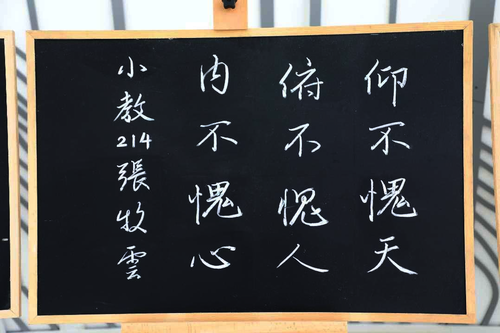 仰不愧天
俯不愧人
内不愧心
小教214張牧雲